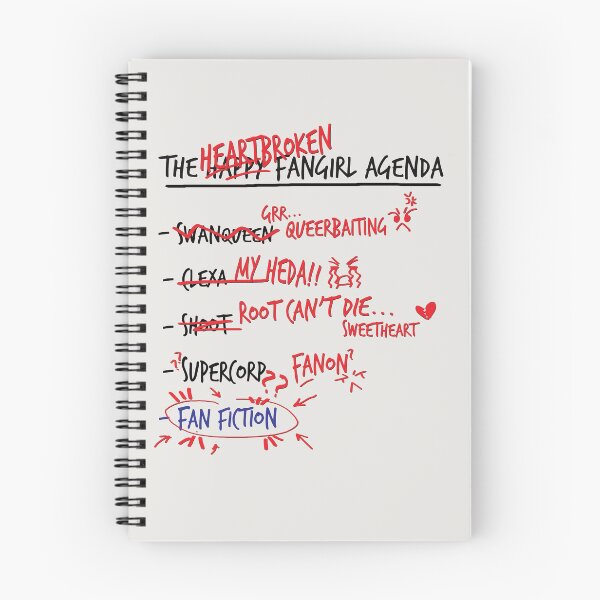 HEARTBROKEN
THE HAPPY FANGIRL AGENDA
GRR...
- SWANQUEEN QUEERBAITING
- CLEXA MY HEDA!!
- SHOOT ROOT CAN'T DIE...
SWEETHEART
-?? SUPERCORP?? FANON?
- FAN FICTION